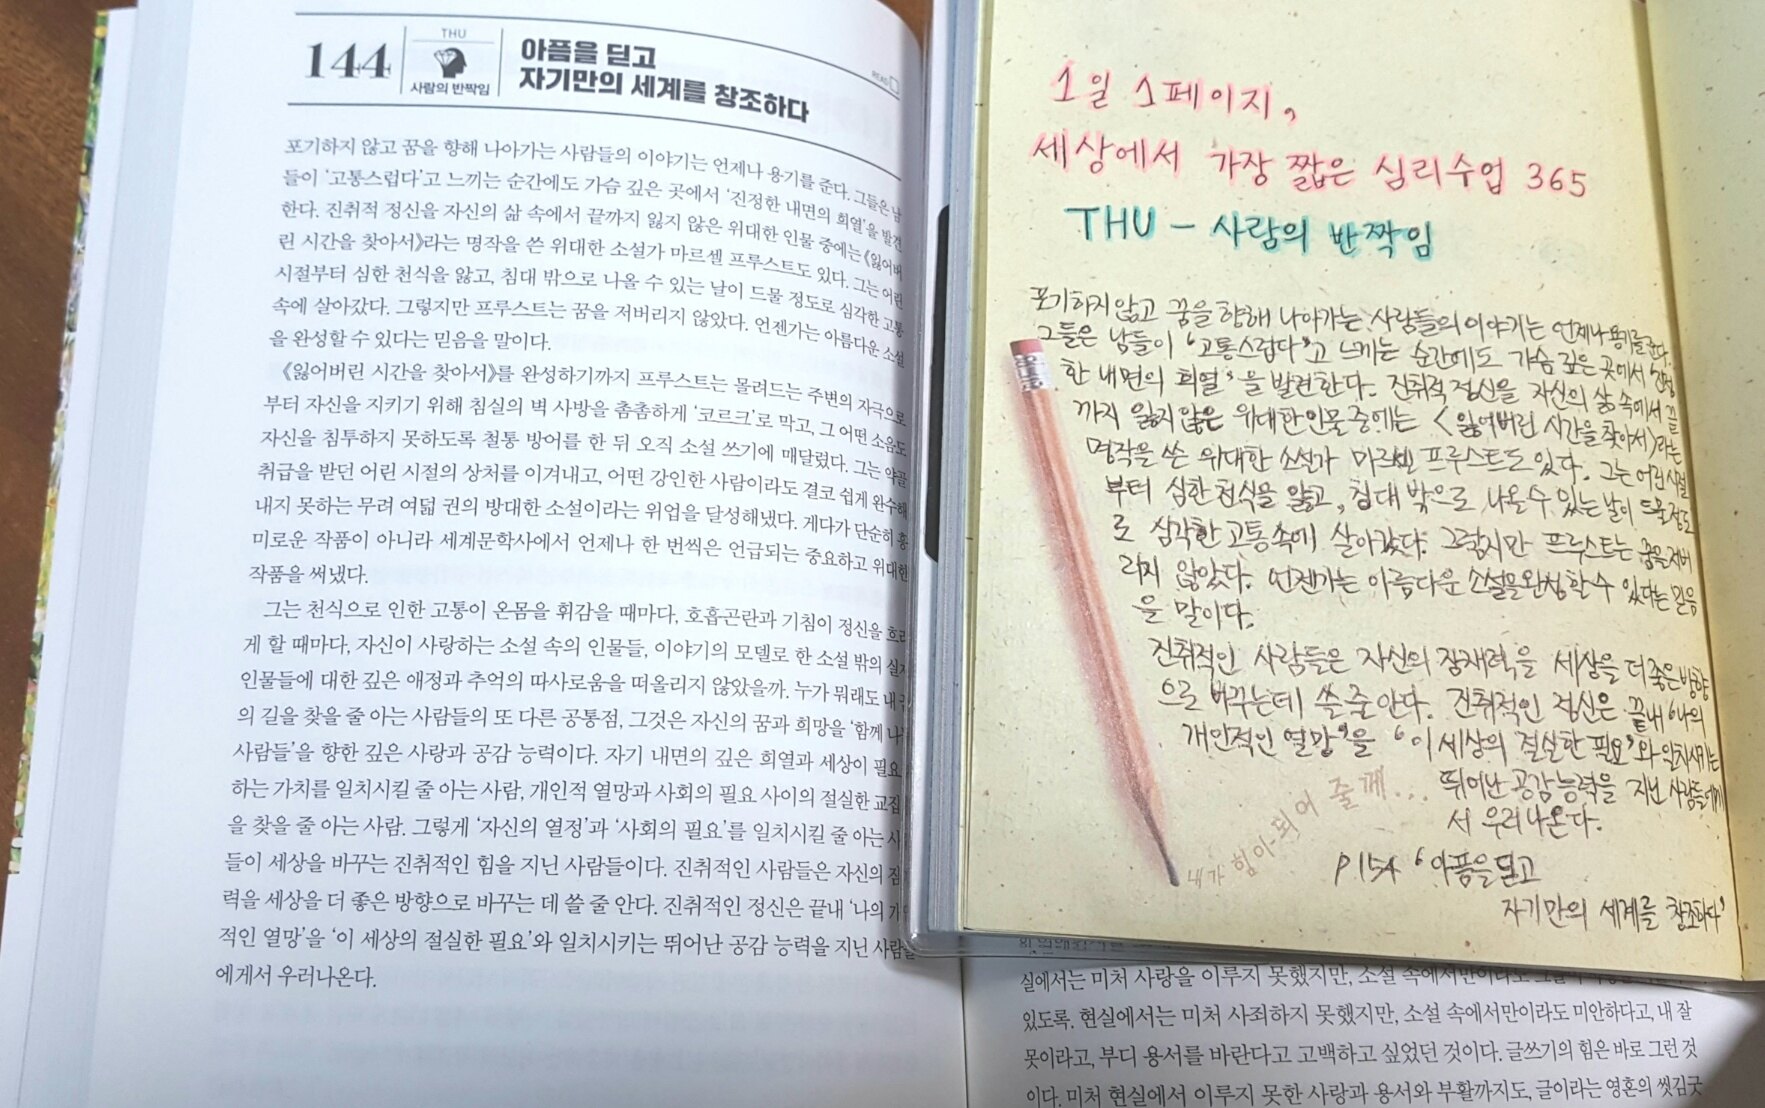 144
THU
사람의 반짝임
아픔을 딛고
자기만의 세계를 창조하다
READ
포기하지 않고 꿈을 향해 나아가는 사람들의 이야기는 언제나 용기를 준다. 그들은 남
들이 '고통스럽다'고 느끼는 순간에도 가슴 깊은 곳에서 '진정한 내면의 희열'을 발견
한다. 진취적 정신을 자신의 삶 속에서 끝까지 잃지 않은 위대한 인물 중에는 《잃어버
린 시간을 찾아서》라는 명작을 쓴 위대한 소설가 마르셀 프루스트도 있다. 그는 어린
시절부터 심한 천식을 앓고, 침대 밖으로 나올 수 있는 날이 드물 정도로 심각한 고통
속에 살아갔다. 그렇지만 프루스트는 꿈을 저버리지 않았다. 언젠가는 아름다운 소설
을 완성할 수 있다는 믿음을 말이다.
《잃어버린 시간을 찾아서》를 완성하기까지 프루스트는 몰려드는 주변의 자극으로
부터 자신을 지키기 위해 침실의 벽 사방을 촘촘하게 '코르크'로 막고, 그 어떤 소음도
자신을 침투하지 못하도록 철통 방어를 한 뒤 오직 소설 쓰기에 매달렸다. 그는 약골
취급을 받던 어린 시절의 상처를 이겨내고, 어떤 강인한 사람이라도 결코 쉽게 완수해
내지 못하는 무려 여덟 권의 방대한 소설이라는 위업을 달성해냈다. 게다가 단순히 흥
미로운 작품이 아니라 세계문학사에서 언제나 한 번씩은 언급되는 중요하고 위대한
작품을 써냈다.
그는 천식으로 인한 고통이 온몸을 휘감을 때마다, 호흡곤란과 기침이 정신을 흐리
게 할 때마다, 자신이 사랑하는 소설 속의 인물들, 이야기의 모델로 한 소설 밖의 실제
인물들에 대한 깊은 애정과 추억의 따사로움을 떠올리지 않았을까. 누가 뭐래도 내
의 길을 찾을 줄 아는 사람들의 또 다른 공통점, 그것은 자신의 꿈과 희망을 '함께
사람들'을 향한 깊은 사랑과 공감 능력이다. 자기 내면의 깊은 희열과 세상이 필요
하는 가치를 일치시킬 줄 아는 사람, 개인적 열망과 사회의 필요 사이의 절실한 교집
을 찾을 줄 아는 사람. 그렇게 '자신의 열정'과 '사회의 필요'를 일치시킬 줄 아는 사
들이 세상을 바꾸는 진취적인 힘을 지닌 사람들이다. 진취적인 사람들은 자신의 잠
력을 세상을 더 좋은 방향으로 바꾸는 데 쓸 줄 안다. 진취적인 정신은 끝내 '나의 개인
적인 열망'을 '이 세상의 절실한 필요'와 일치시키는 뛰어난 공감 능력을 지닌 사람들
에게서 우러나온다.
1일 1페이지,
세상에서 가장 짧은 심리수업 365
THU - 사람의 반짝임
포기하지 않고 꿈을 향해 나아가는 사람들의 이야기는 언제나 용기를 준다.
그들은 남들이 '고통스럽다'고 느끼는 순간에도 가슴 깊은 곳에서 '진정
한 내면의 희열'을 발견한다. 진취적 정신을 자신의 삶 속에서 끝
까지 잃지 않은 위대한 인물 중에는 <잃어버린 시간을 찾아서>라는
명작을 쓴 위대한 소설가 마르셀 프루스트도 있다. 그는 어린시절
부터 심한 천식을 앓고, 침대 밖으로 나올 수 있는 날이 드물 정도
로 심각한 고통 속에 살아갔다. 그렇지만 프루스트는 꿈을 저버
리지 않았다. 언젠가는 아름다운 소설을 완성할 수 있다는 믿음
을 말이다.
진취적인 사람들은 자신의 잠재력을 세상을 더 좋은 방향
으로 바꾸는데 쓸 줄 안다. 진취적인 정신은 끝내 '나의
개인적인 열망'을 '이 세상의 절실한 필요'와 일치시키는
뛰어난 공감 능력을 지닌 사람들에게
서 우러나온다.
내가 힘이 되어 줄께...
P154 '아픔을 딛고
자기만의 세계를 창조하다'
실에서는 미처 사랑을 이루지 못했지만, 소설 속에서만이라도
있도록. 현실에서는 미처 사죄하지 못했지만, 소설 속에서만이라도 미안하다고, 내 잘
못이라고, 부디 용서를 바란다고 고백하고 싶었던 것이다. 글쓰기의 힘은 바로 그런 것
이다. 미처 현실에서 이루지 못한 사랑과 용서와 부활까지도, 글이라는 영혼의 씻김굿